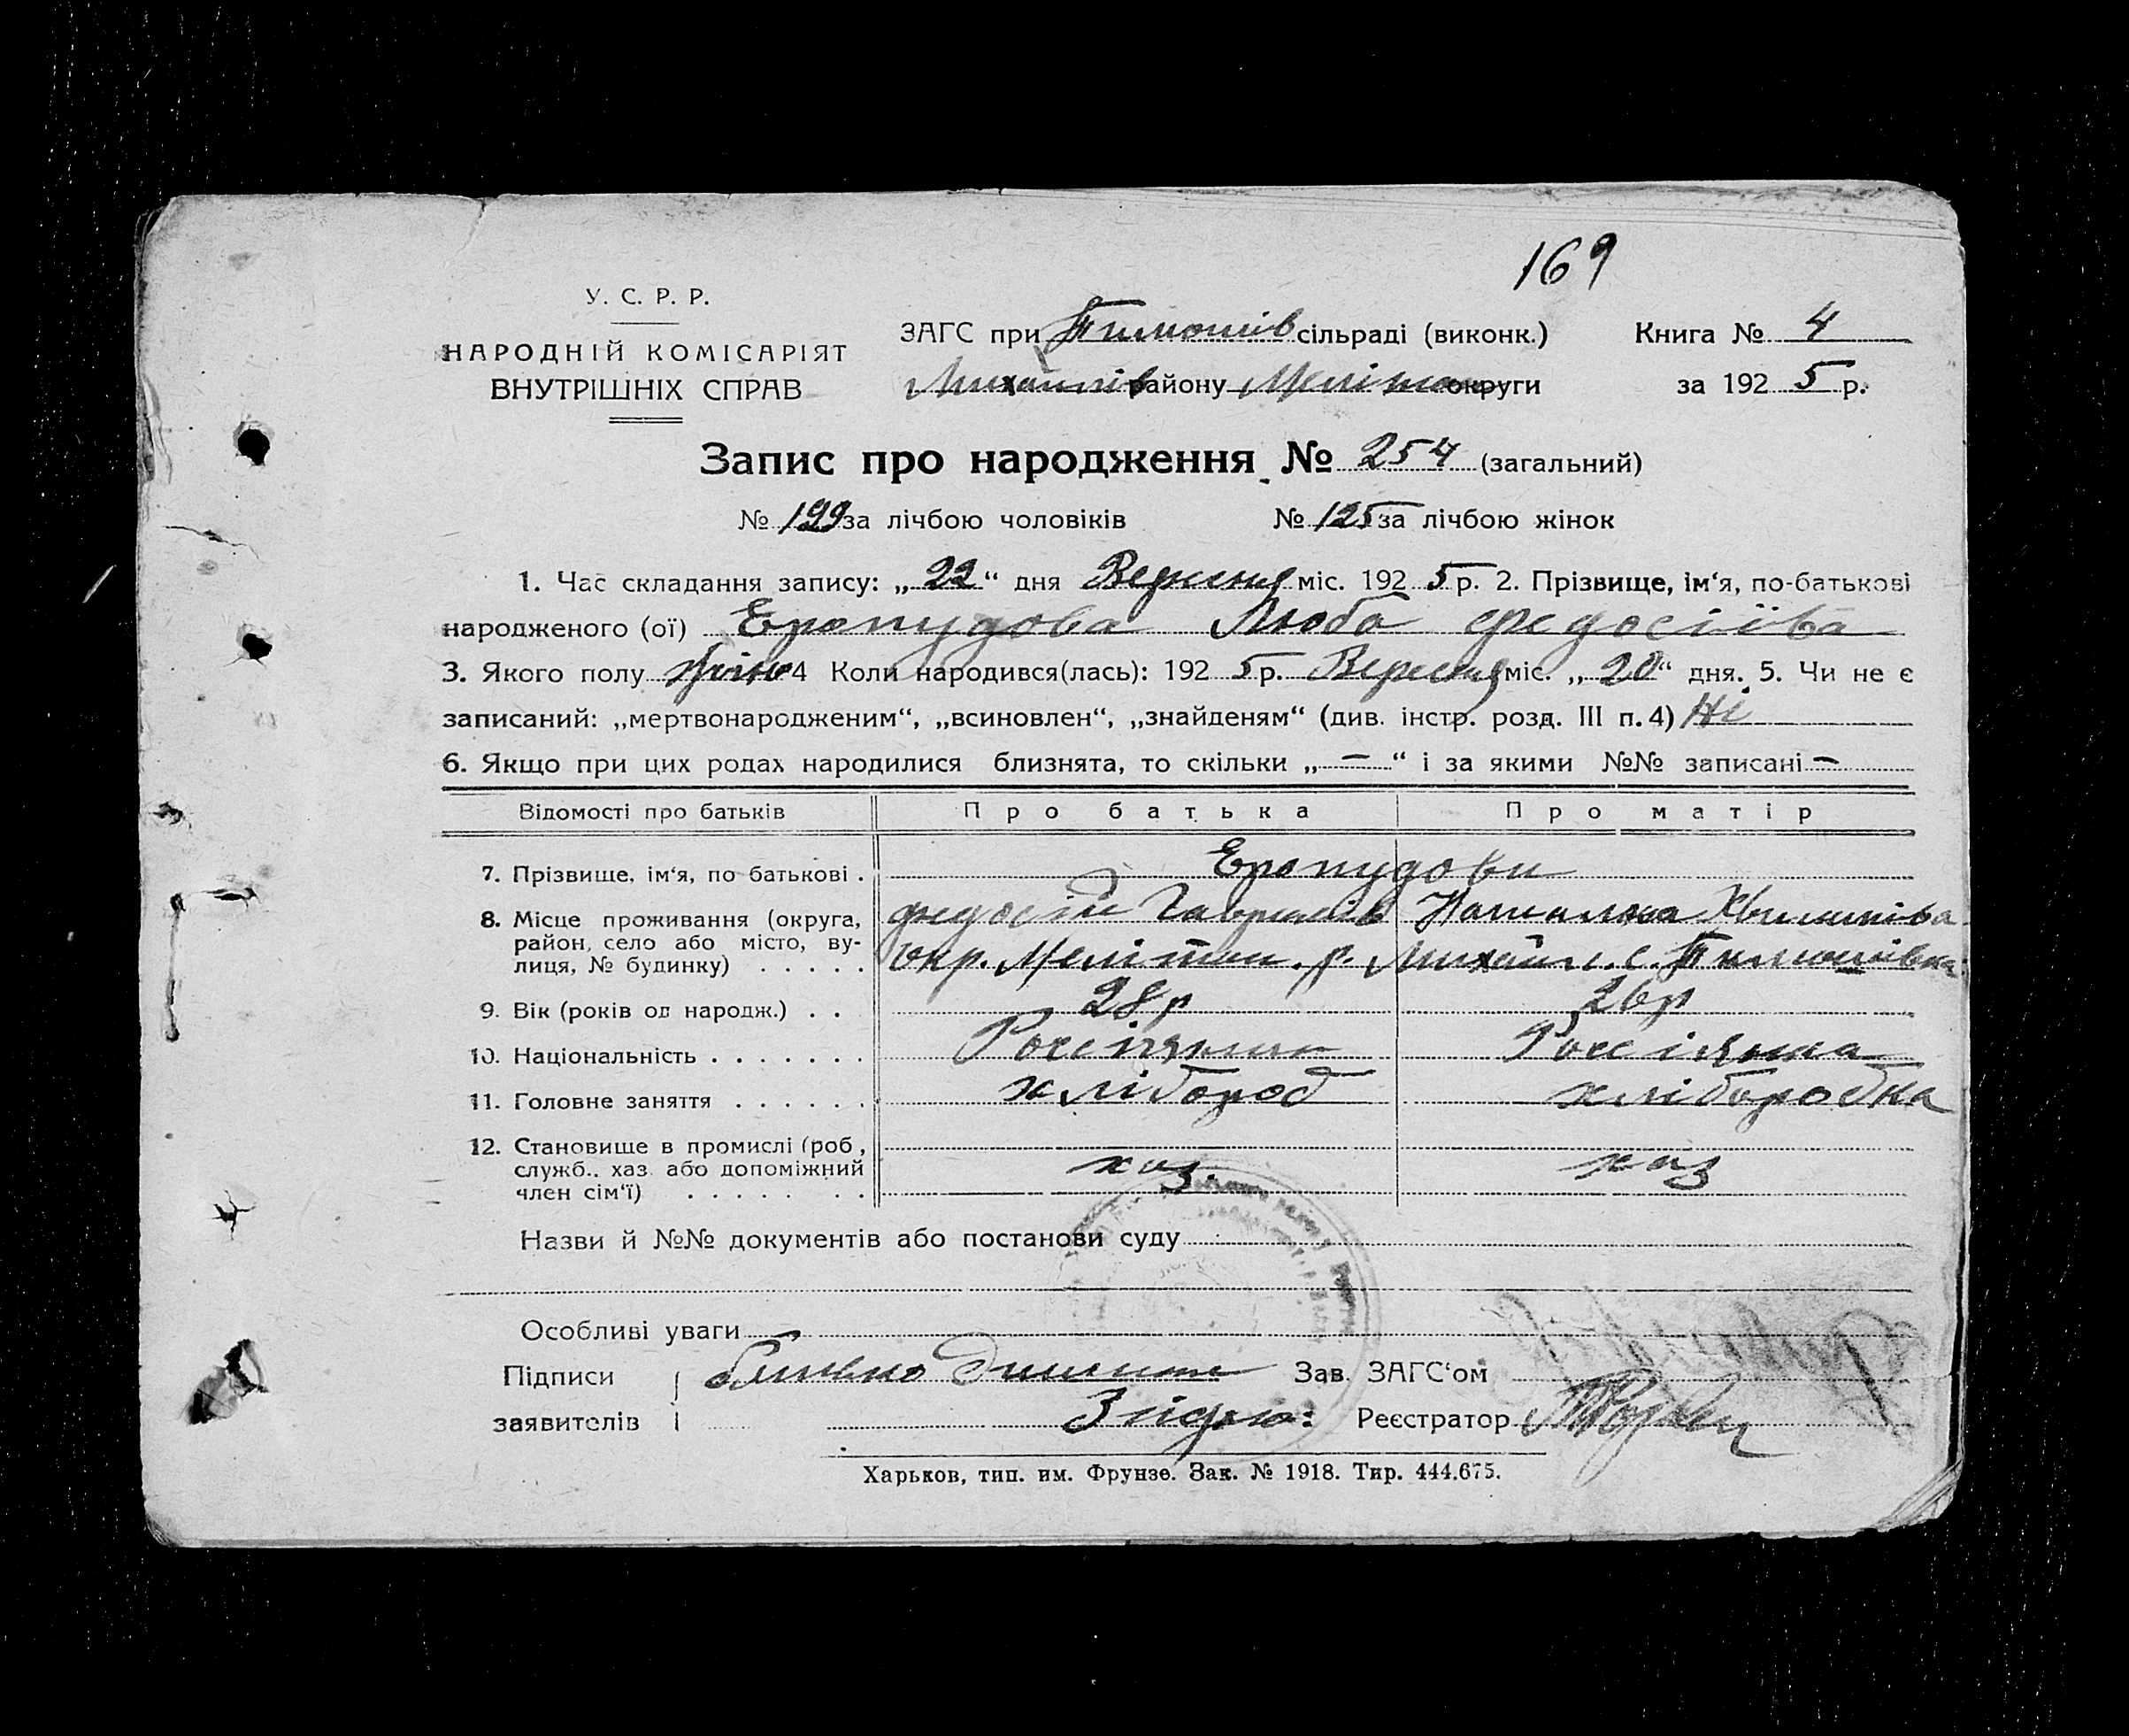 169
У. С. Р. Р.
НАРОДНІЙ КОМІСАРІЯТ
ВНУТРІШНІХ СПРАВ
ЗАГС при Тимошів сільраді (виконк.) Книга № 4
Михайлів району Меліт округи за 1925 р.
Запис про народження № 254 (загальний)
№ 129 за лічбою чоловіків № 125 за лічбою жінок
1. Час складання запису: „22“ дня Вересня міс. 1925 р. 2. Прізвище, ім‘я, по-батькові
народженого (ої) Еропудова Люба Федосіїва
3. Якого полу жіно 4 Коли народився(лась): 1925 р. Вересня міс. „20“ дня. 5. Чи не є
записаний: „мертвонародженим“, „всиновлен“, „знайденям“ (див. інстр. розд. III п. 4) Ні
6. Якщо при цих родах народилися близнята, то скільки „—“ і за якими №№ записані —
Відомості про батьків Про батька Про матір
7. Прізвище, ім‘я, по батькові . Еропудови
Федосій Гаврилів Наталка
8. Місце проживання (округа,
район, село або місто, ву-
лиця, № будинку) . . . . . Окр. Мелітоп. р. Михайл. с. Тимошівка
9. Вік (років од народж.) . . 28 р 26 р
10. Національність . . . . . . . Россіянин Россіянка
11. Головне заняття . . . . . . хлібороб хліборобка
12. Становище в промислі (роб,
служб., хаз. або допоміжний
член сім‘ї) . . . . . . . хаз. хаз
Назви й №№ документів або постанови суду
Особливі уваги
Підписи Зав. ЗАГС‘ом
заявителів Реєстратор
Харьков, тип. им. Фрунзе. Зак. № 1918. Тир. 444.675.